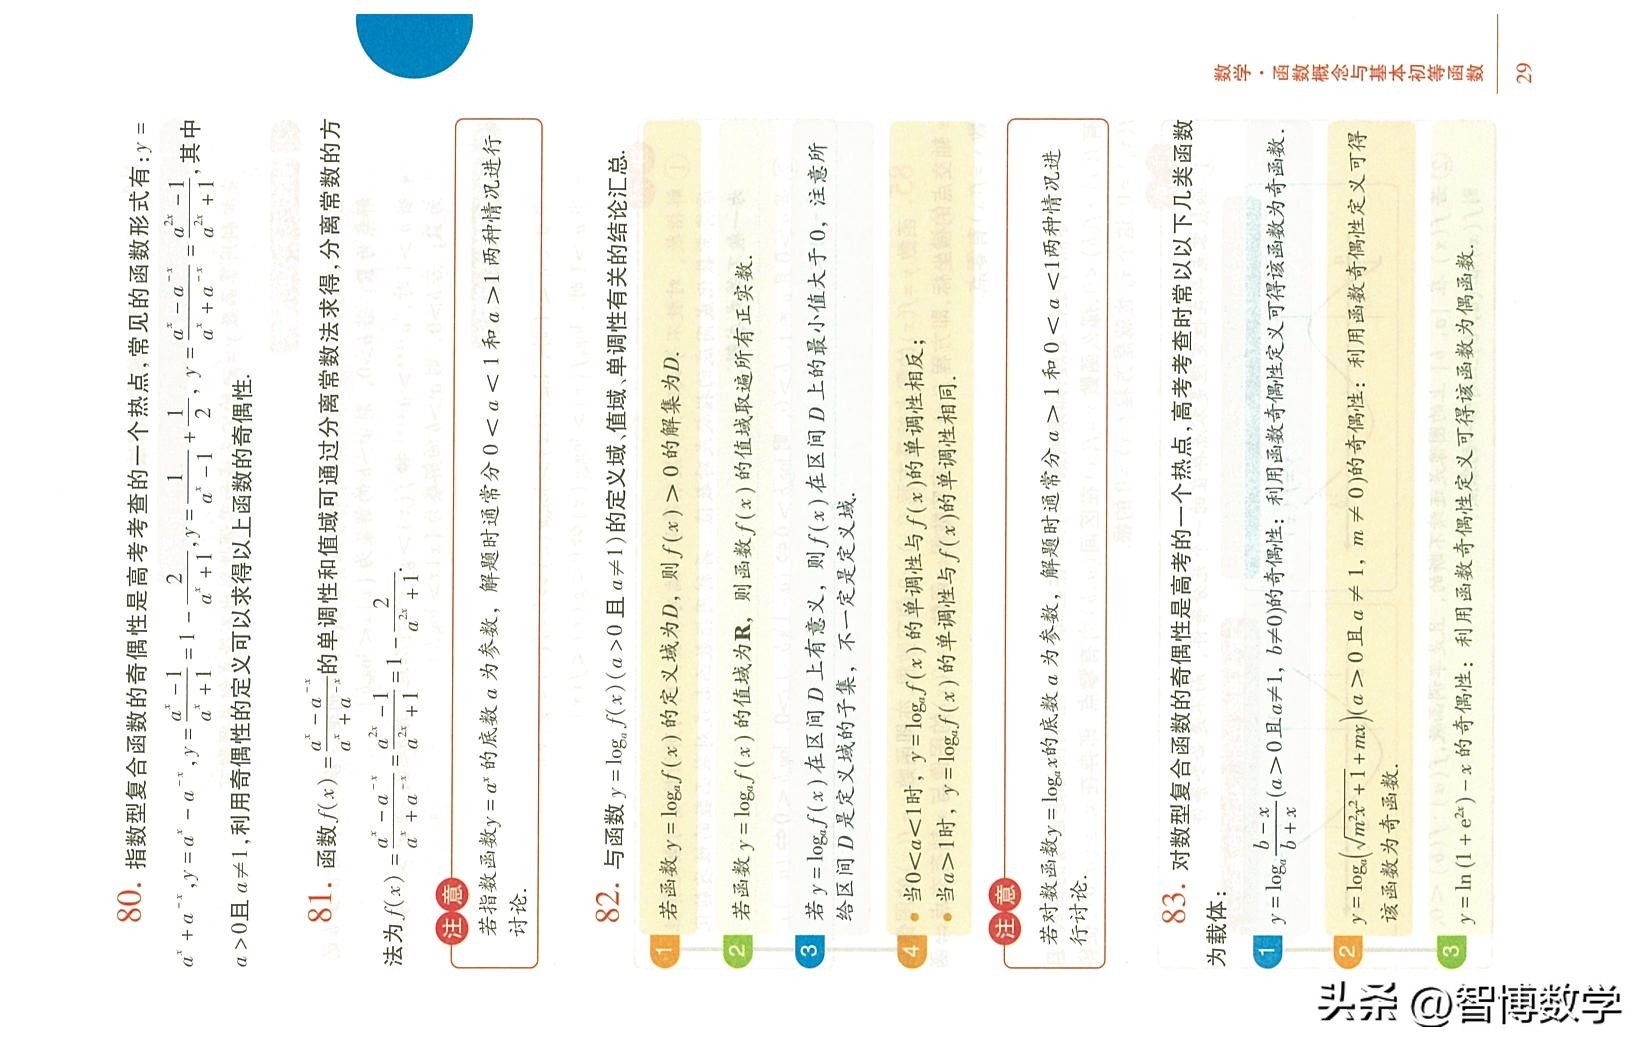 80. 指数型复合函数的奇偶性是高考考查的一个热点,常见的函数形式有:y=
a^x+a^{-x},y=a^x-a^{-x},y=\frac{a^x-1}{a^x+1}=1-\frac{2}{a^x+1},y=\frac{1}{a^x-1}+\frac{1}{2},y=\frac{a^x-a^{-x}}{a^x+a^{-x}}=\frac{a^{2x}-1}{a^{2x}+1},其中
a>0且a≠1,利用奇偶性的定义可以求得以上函数的奇偶性.
81. 函数f(x)=\frac{a^x-a^{-x}}{a^x+a^{-x}}的单调性和值域可通过分离常数法求得,分离常数的方
法为f(x)=\frac{a^x-a^{-x}}{a^x+a^{-x}}=\frac{a^{2x}-1}{a^{2x}+1}=1-\frac{2}{a^{2x}+1}.
注意
若指数函数y=a^x的底数a为参数,解题时通常分0<a<1和a>1两种情况进行
讨论.
82. 与函数y=log_a f(x)(a>0且a≠1)的定义域、值域、单调性有关的结论汇总.
1 若函数y=log_a f(x)的定义域为D,则f(x)>0的解集为D.
2 若函数y=log_a f(x)的值域为R,则函数f(x)的值域取遍所有正实数.
3 若y=log_a f(x)在区间D上有意义,则f(x)在区间D上的最小值大于0,注意所
给区间D是定义域的子集,不一定是定义域.
4 • 当0<a<1时,y=log_a f(x)的单调性与f(x)的单调性相反;
• 当a>1时,y=log_a f(x)的单调性与f(x)的单调性相同.
注意
若对数函数y=log_a x的底数a为参数,解题时通常分a>1和0<a<1两种情况进
行讨论.
83. 对数型复合函数的奇偶性是高考的一个热点,高考考查时常以以下几类函数
为载体:
1 y=log_a\frac{b-x}{b+x}(a>0且a≠1,b≠0)的奇偶性:利用函数奇偶性定义可得该函数为奇函数.
2 y=log_a(\sqrt{m^2x^2+1}+mx)(a>0且a≠1,m≠0)的奇偶性:利用函数奇偶性定义可得
该函数为奇函数.
3 y=ln(1+e^{2x})-x的奇偶性:利用函数奇偶性定义可得该函数为偶函数.
数学·函数概念与基本初等函数
29
头条 @智博数学